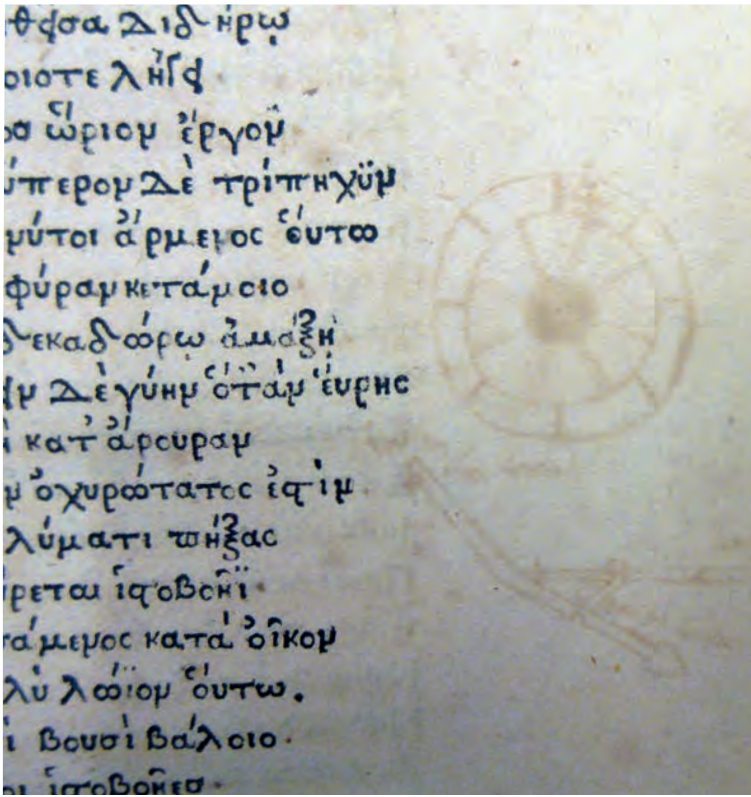 θεῖσα σιδήρῳ
οιότε λήγει
ὥριον ἔργον
ύπερον δὲ τρίπηχϋν
νύτοι ἄρμενος οὕτω
φύραν κετάμοιο
δεκαδώρω ἁμάξη
ν δὲ γύην ὅταν εὕρης
κατ' ἄρουραν
ν ὀχυρώτατος ἐστὶν
λύματι πήξας
ρεται ἱστοβοῆϊ·
άμενος κατὰ οἶκον
λὺ λώϊον οὕτω.
ὶ βουσὶ βάλοιο·
οι ἱστοβοῆες·